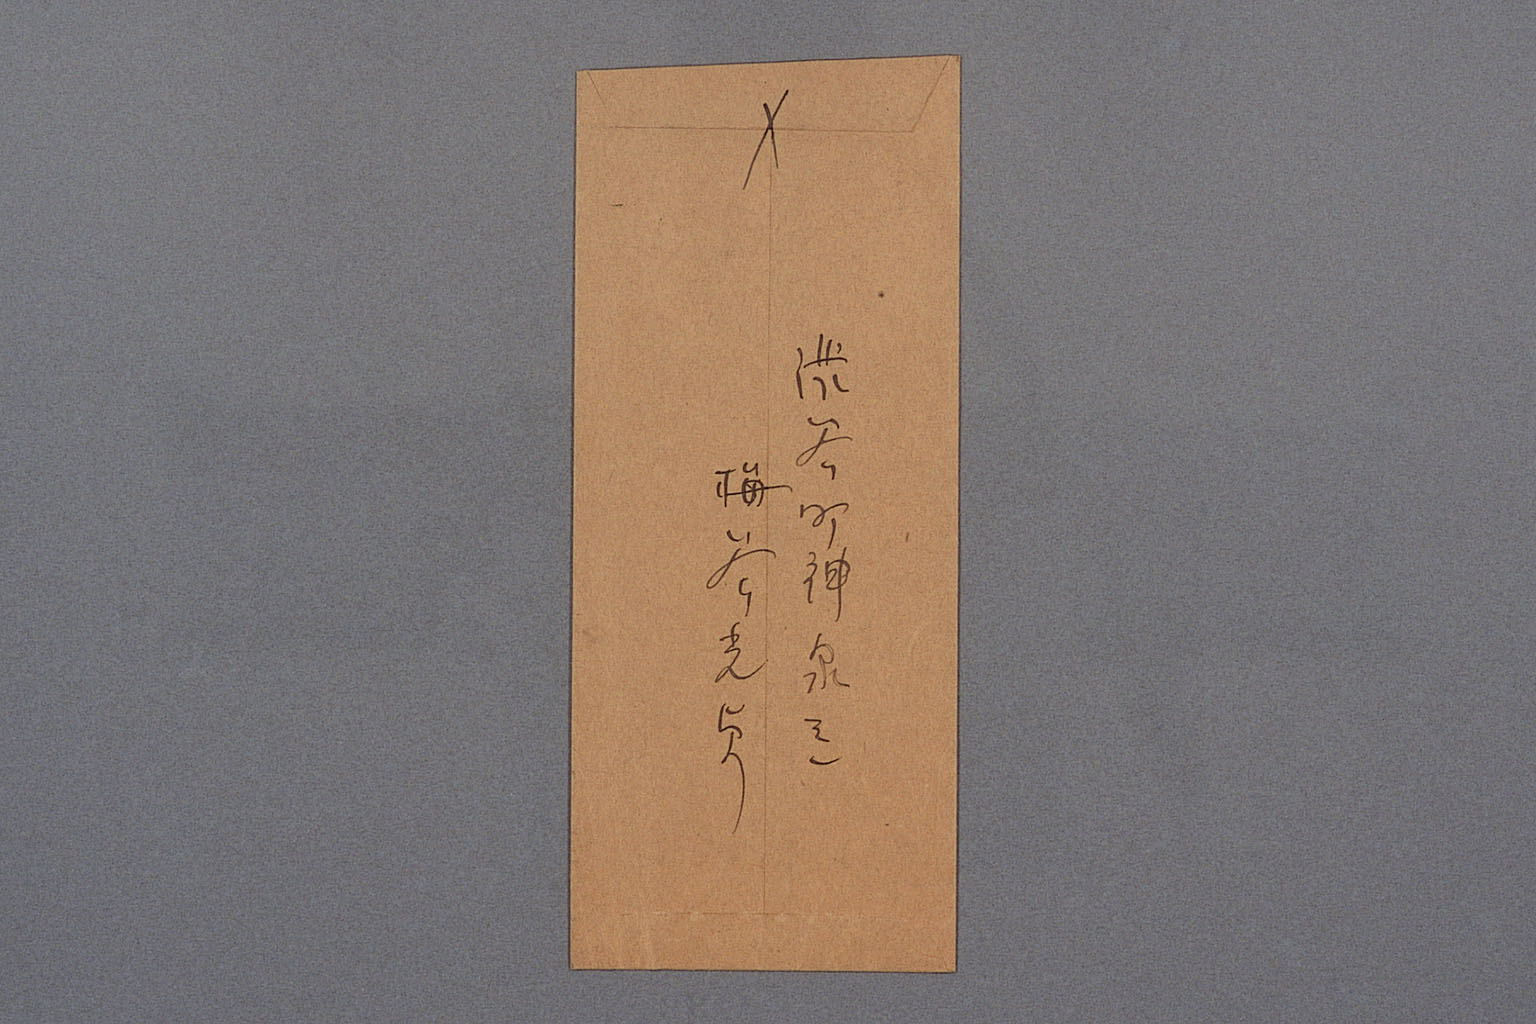 〆
渋谷町神泉三
梅谷光貞